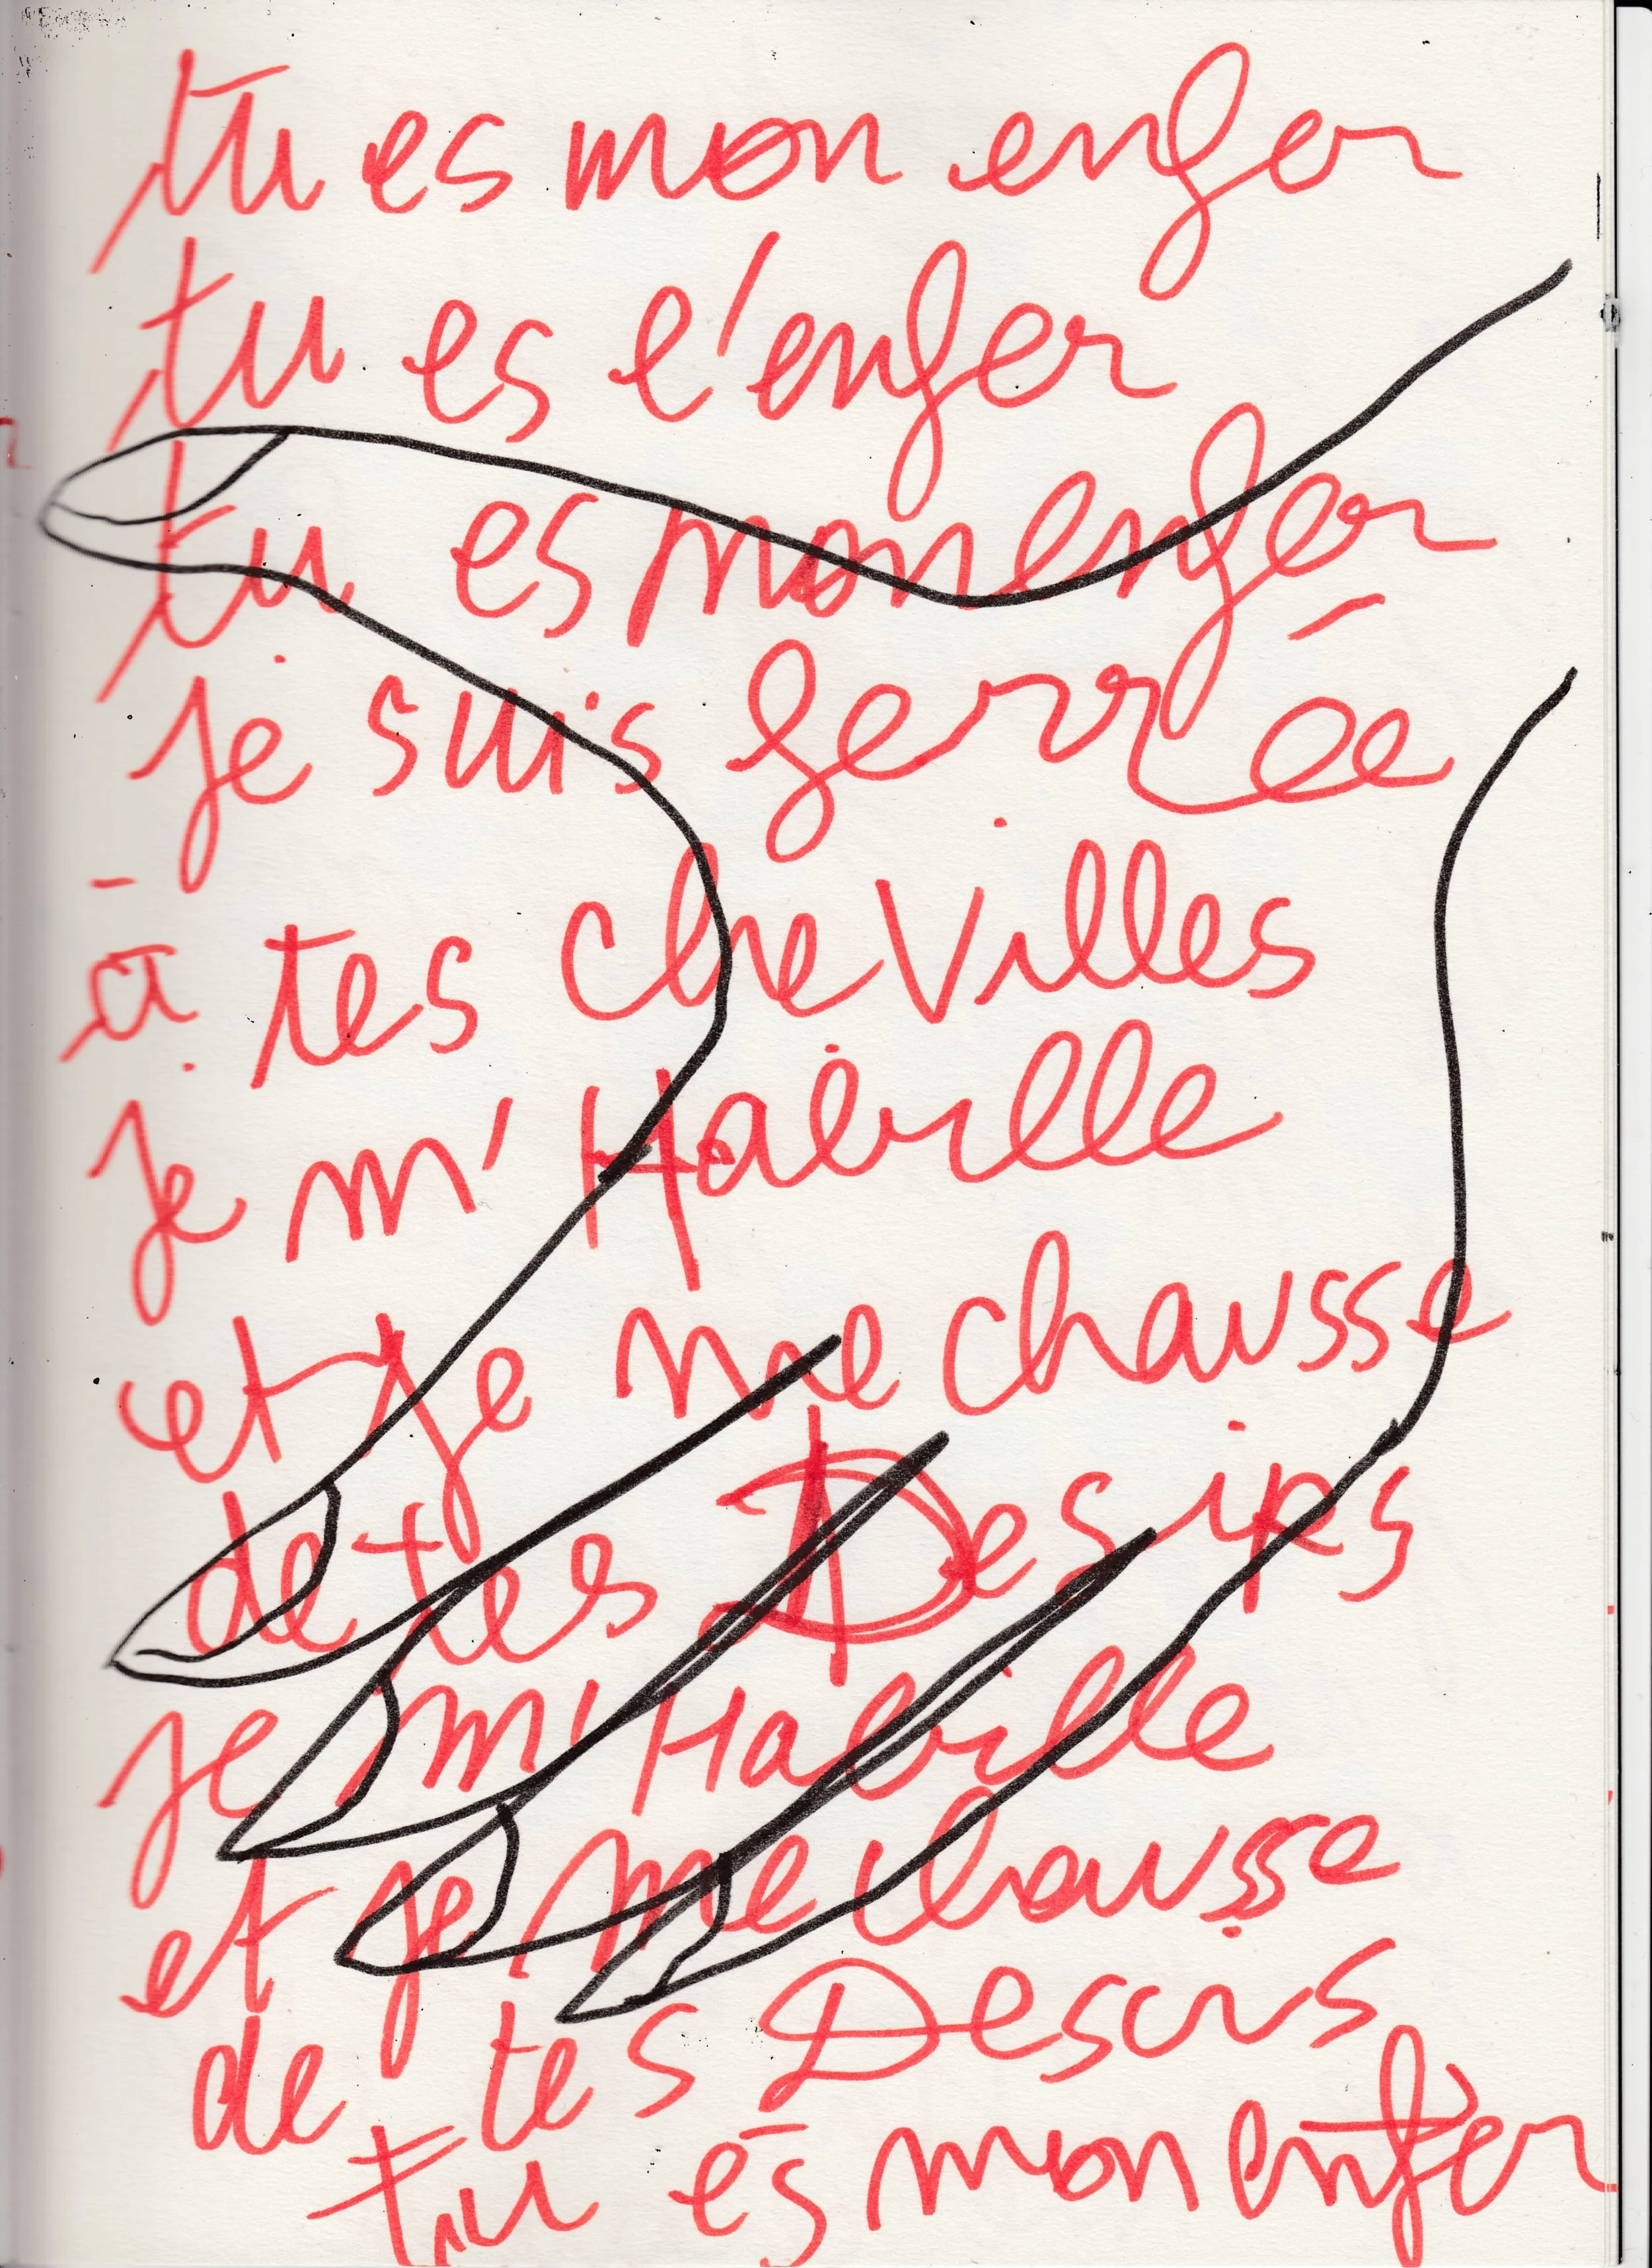 tu es mon enfer
tu es l'enfer
tu es mon enfer
je suis ferrée
à tes cheVilles
je m'Habille
et je me chausse
de tes Desirs
je m'Habille
et je me chausse
de tes Desirs
tu es mon enfer